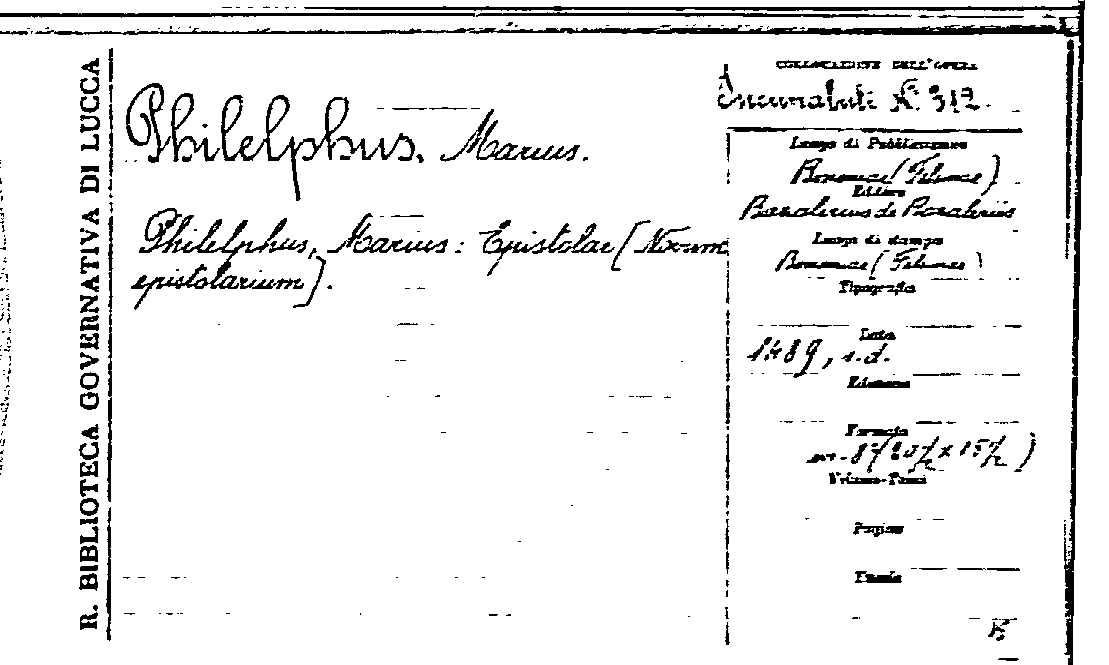 R. BIBLIOTECA GOVERNATIVA DI LUCCA
Philelphus, Marius.
Philelphus, Marius: Epistolae [Novum
epistolarium].
COLLOCAZIONE DELL'OPERA
Incunabuli N. 312
Luogo di Pubblicazione
Bononiae (Felsinae)
Editore
Bazalerius de Bazaleriis
Luogo di stampa
Bononiae (Felsinae)
Tipografia
Data
1489, s.d.
Edizione
Formato
in-8° (20½ x 15½)
Volume-Tomi
Pagine